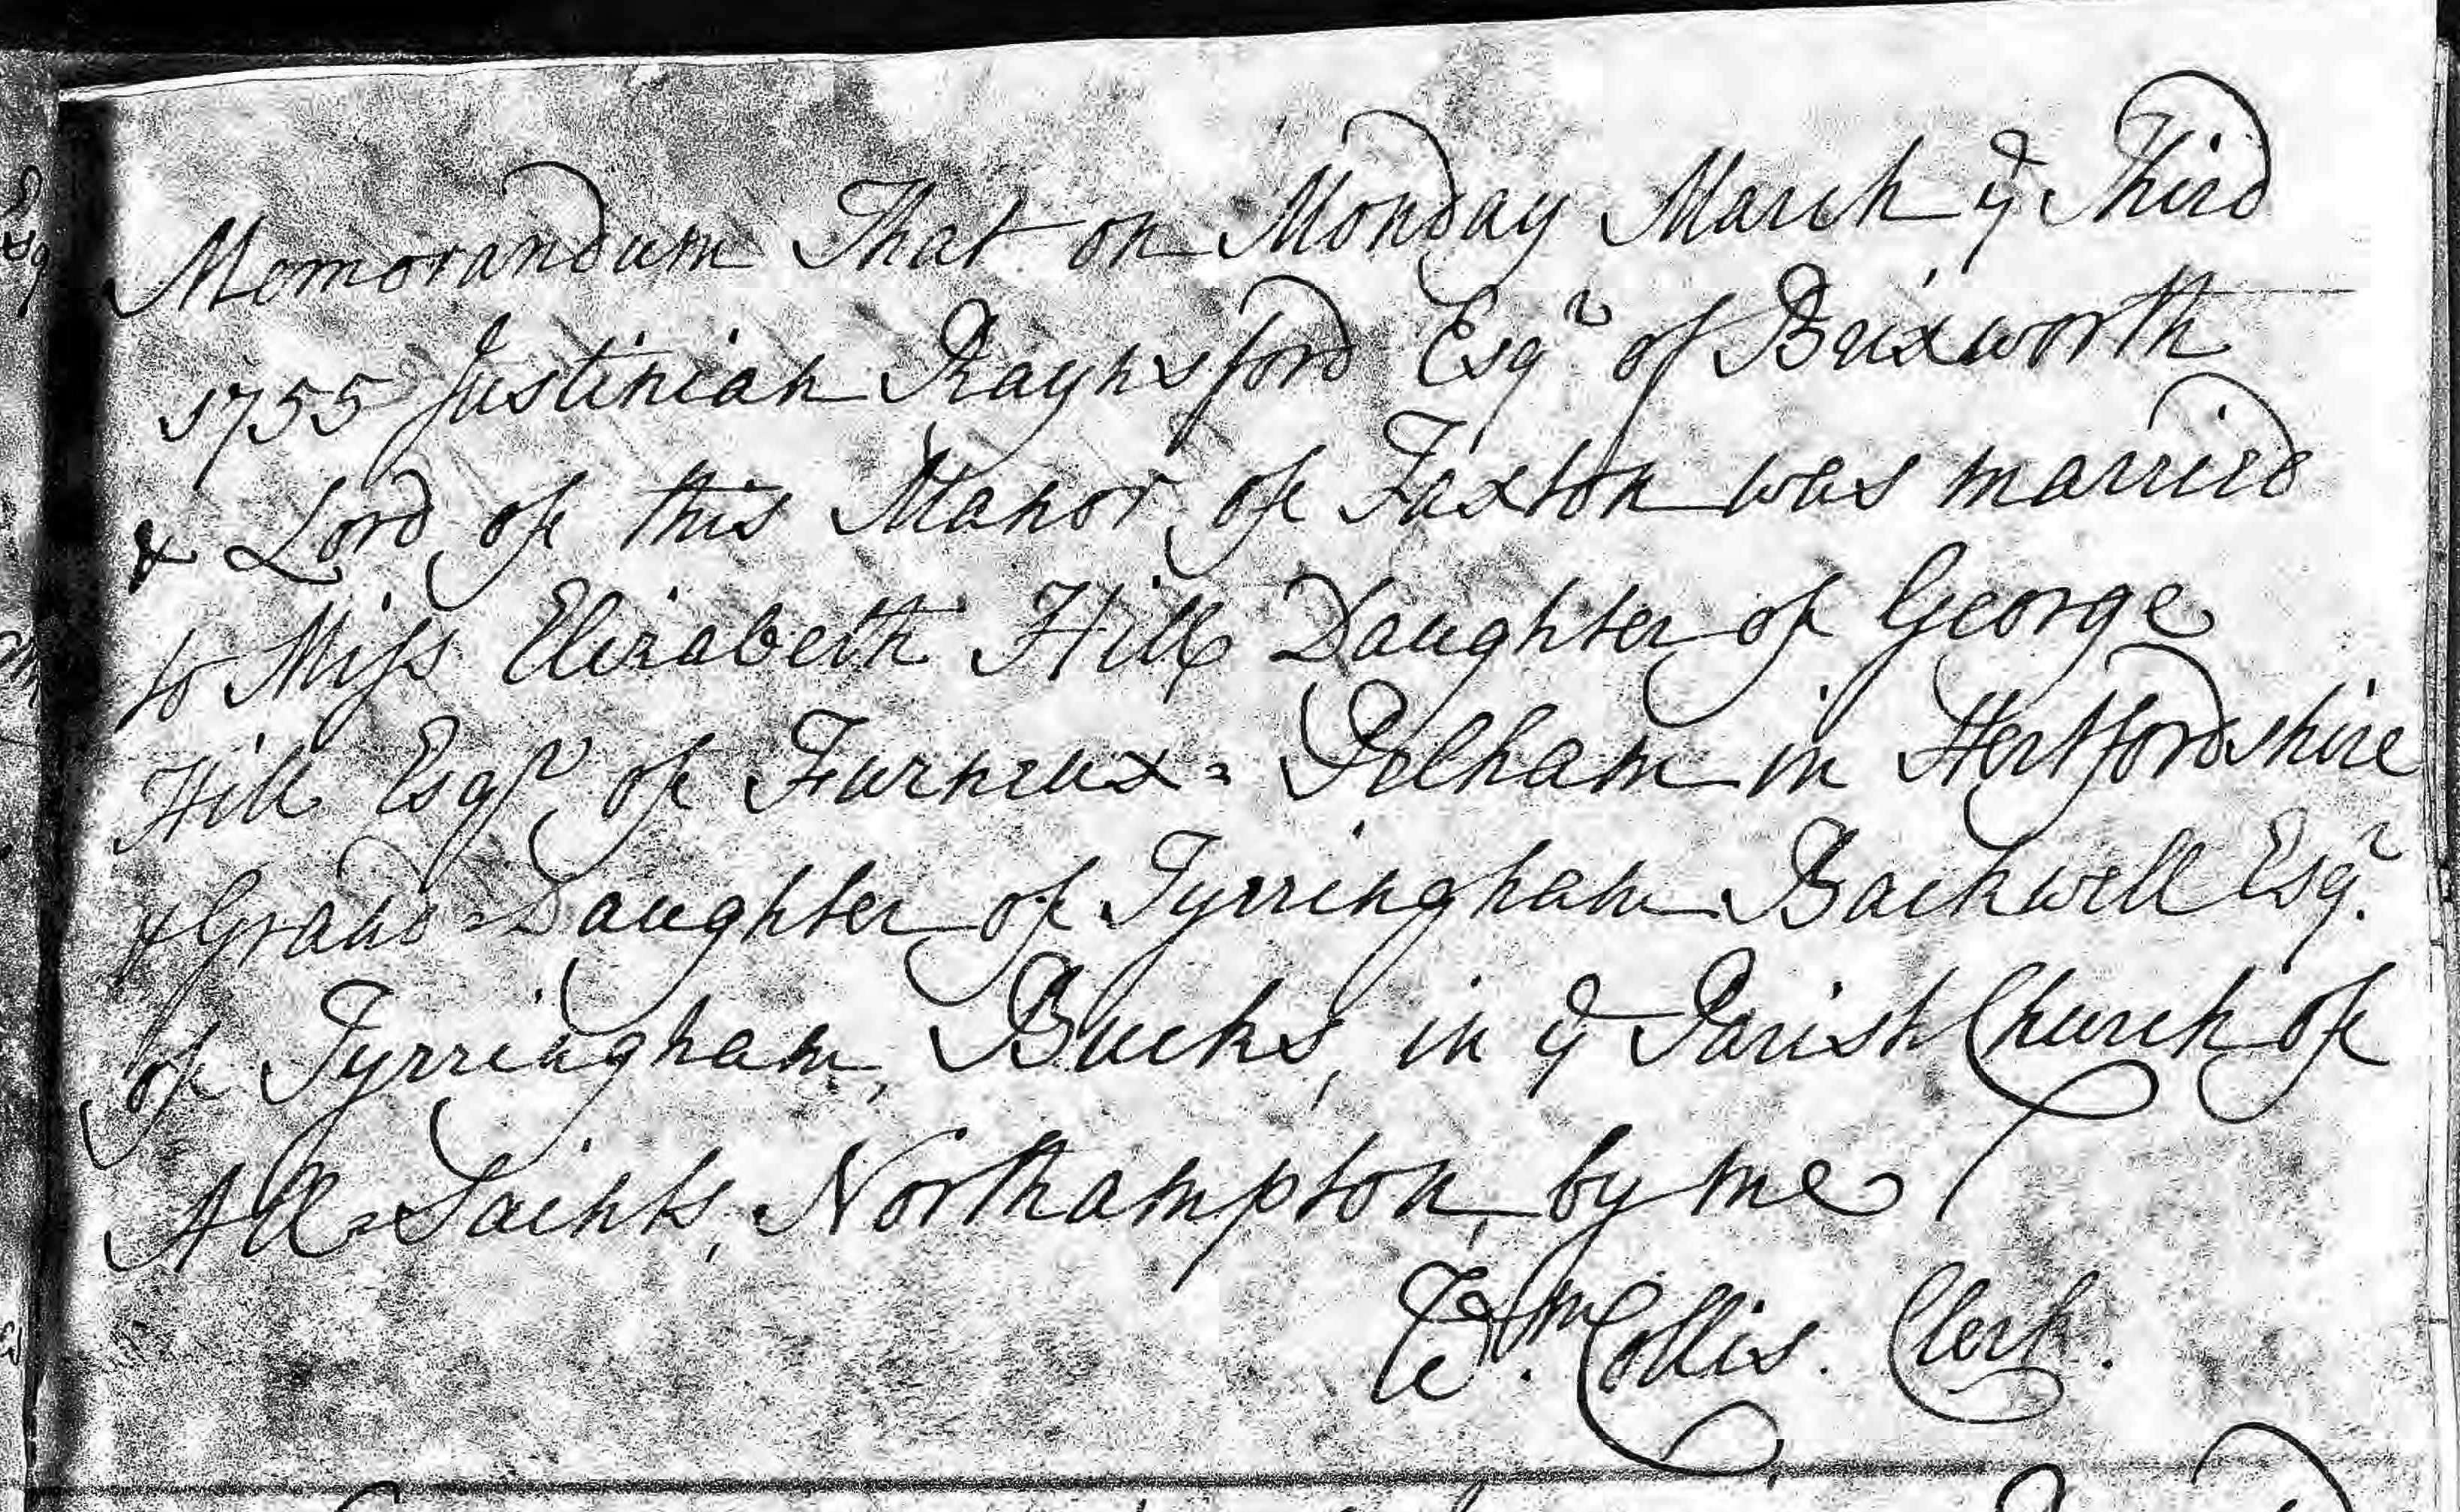 Momorandum That on Monday March ye Third
1755 Justinian Raynsford Esqr of Brixworth
& Lord of this Manor of Faxton was married
to Miss Elizabeth Hill Daughter of George
Hill Esqr of Furneux = Pelham in Hertfordshire
& Grand = Daughter of Tyrringham Backwell Esqr.
of Tyrringham, Bucks, in ye Parish Church of
All = Saints, Northampton, by me
Wm. Collis. Clerk.